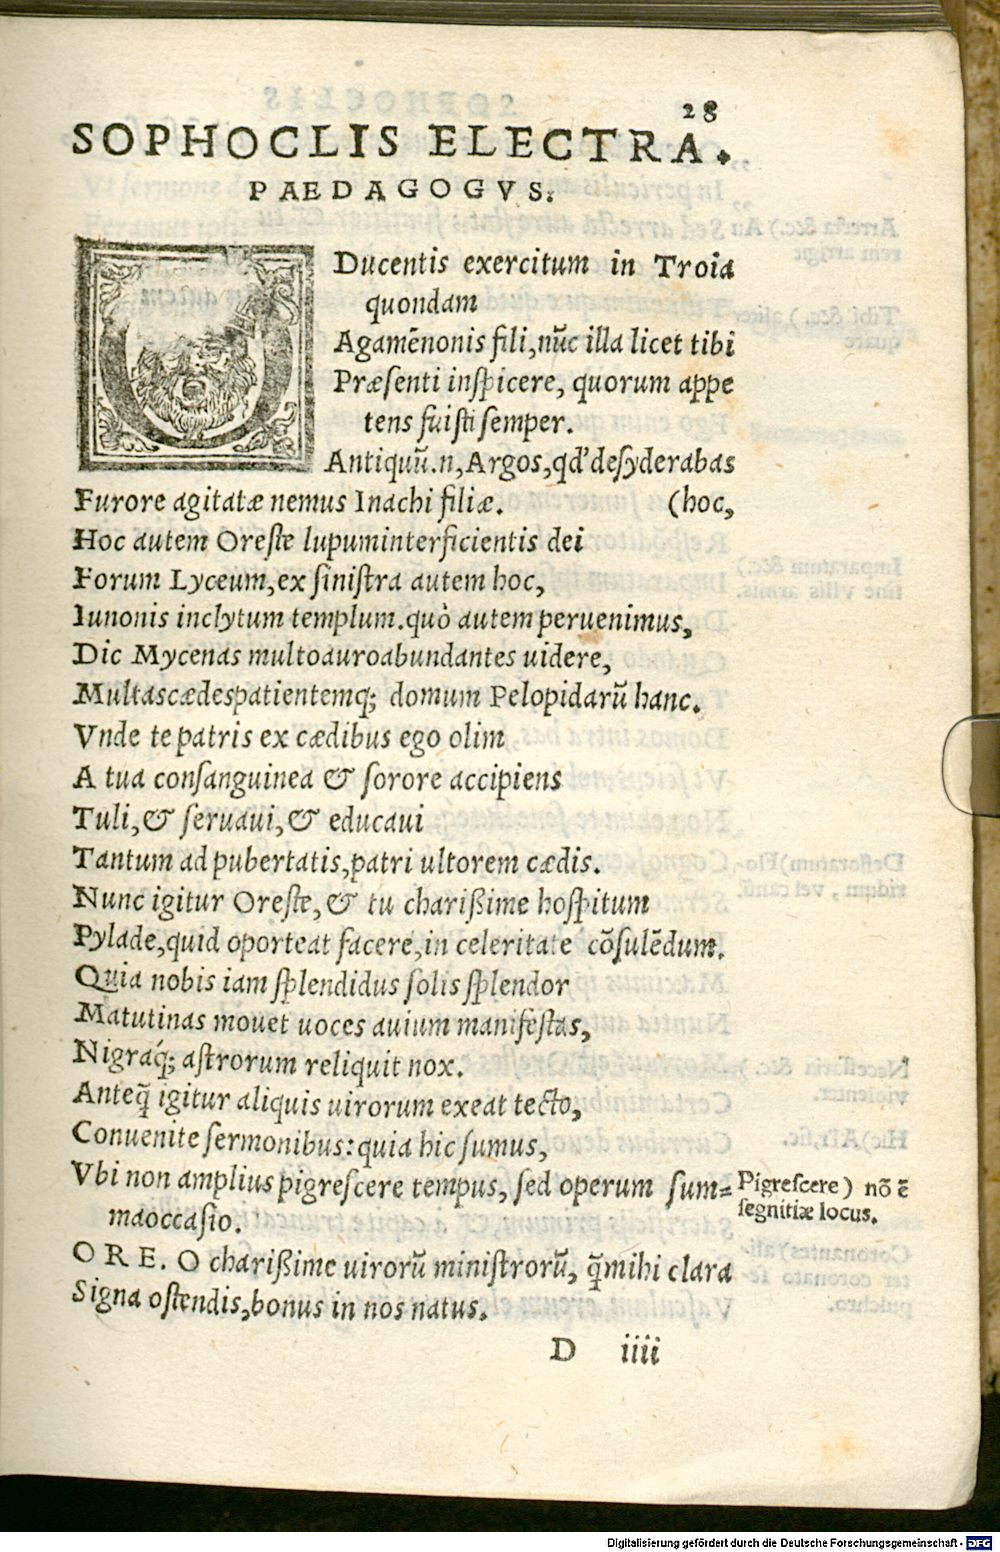 28
SOPHOCLIS ELECTRA.
PAEDAGOGVS.
O Ducentis exercitum in Troia
quondam
Agamẽnonis fili,nũc illa licet tibi
Præsenti inspicere, quorum appe
tens fuisti semper.
Antiquũ.n,Argos,qd' desyderabas
Furore agitatæ nemus Inachi filiæ. (hoc,
Hoc autem Oreste lupuminterficientis dei
Forum Lyceum,ex sinistra autem hoc,
Iunonis inclytum templum.quò autem peruenimus,
Dic Mycenas multoauroabundantes uidere,
Multascædespatientemq; domum Pelopidarũ hanc.
Vnde te patris ex cædibus ego olim
A tua consanguinea & sorore accipiens
Tuli,& seruaui,& educaui
Tantum ad pubertatis,patri ultorem cædis.
Nunc igitur Oreste,& tu charißime hospitum
Pylade,quid oporteat facere,in celeritate cõsulẽdum.
Quia nobis iam splendidus solis splendor
Matutinas mouet uoces auium manifestas,
Nigraq́; astrorum reliquit nox.
Anteq̃ igitur aliquis uirorum exeat tecto,
Conuenite sermonibus: quia hic sumus,
Vbi non amplius pigrescere tempus, sed operum sum=
maoccasio.
Pigrescere) nõ ẽ
segnitiæ locus.
ORE. O charißime uirorũ ministrorũ, q̃mihi clara
Signa ostendis,bonus in nos natus.
D iiii
Digitalisierung gefördert durch die Deutsche Forschungsgemeinschaft - DFG